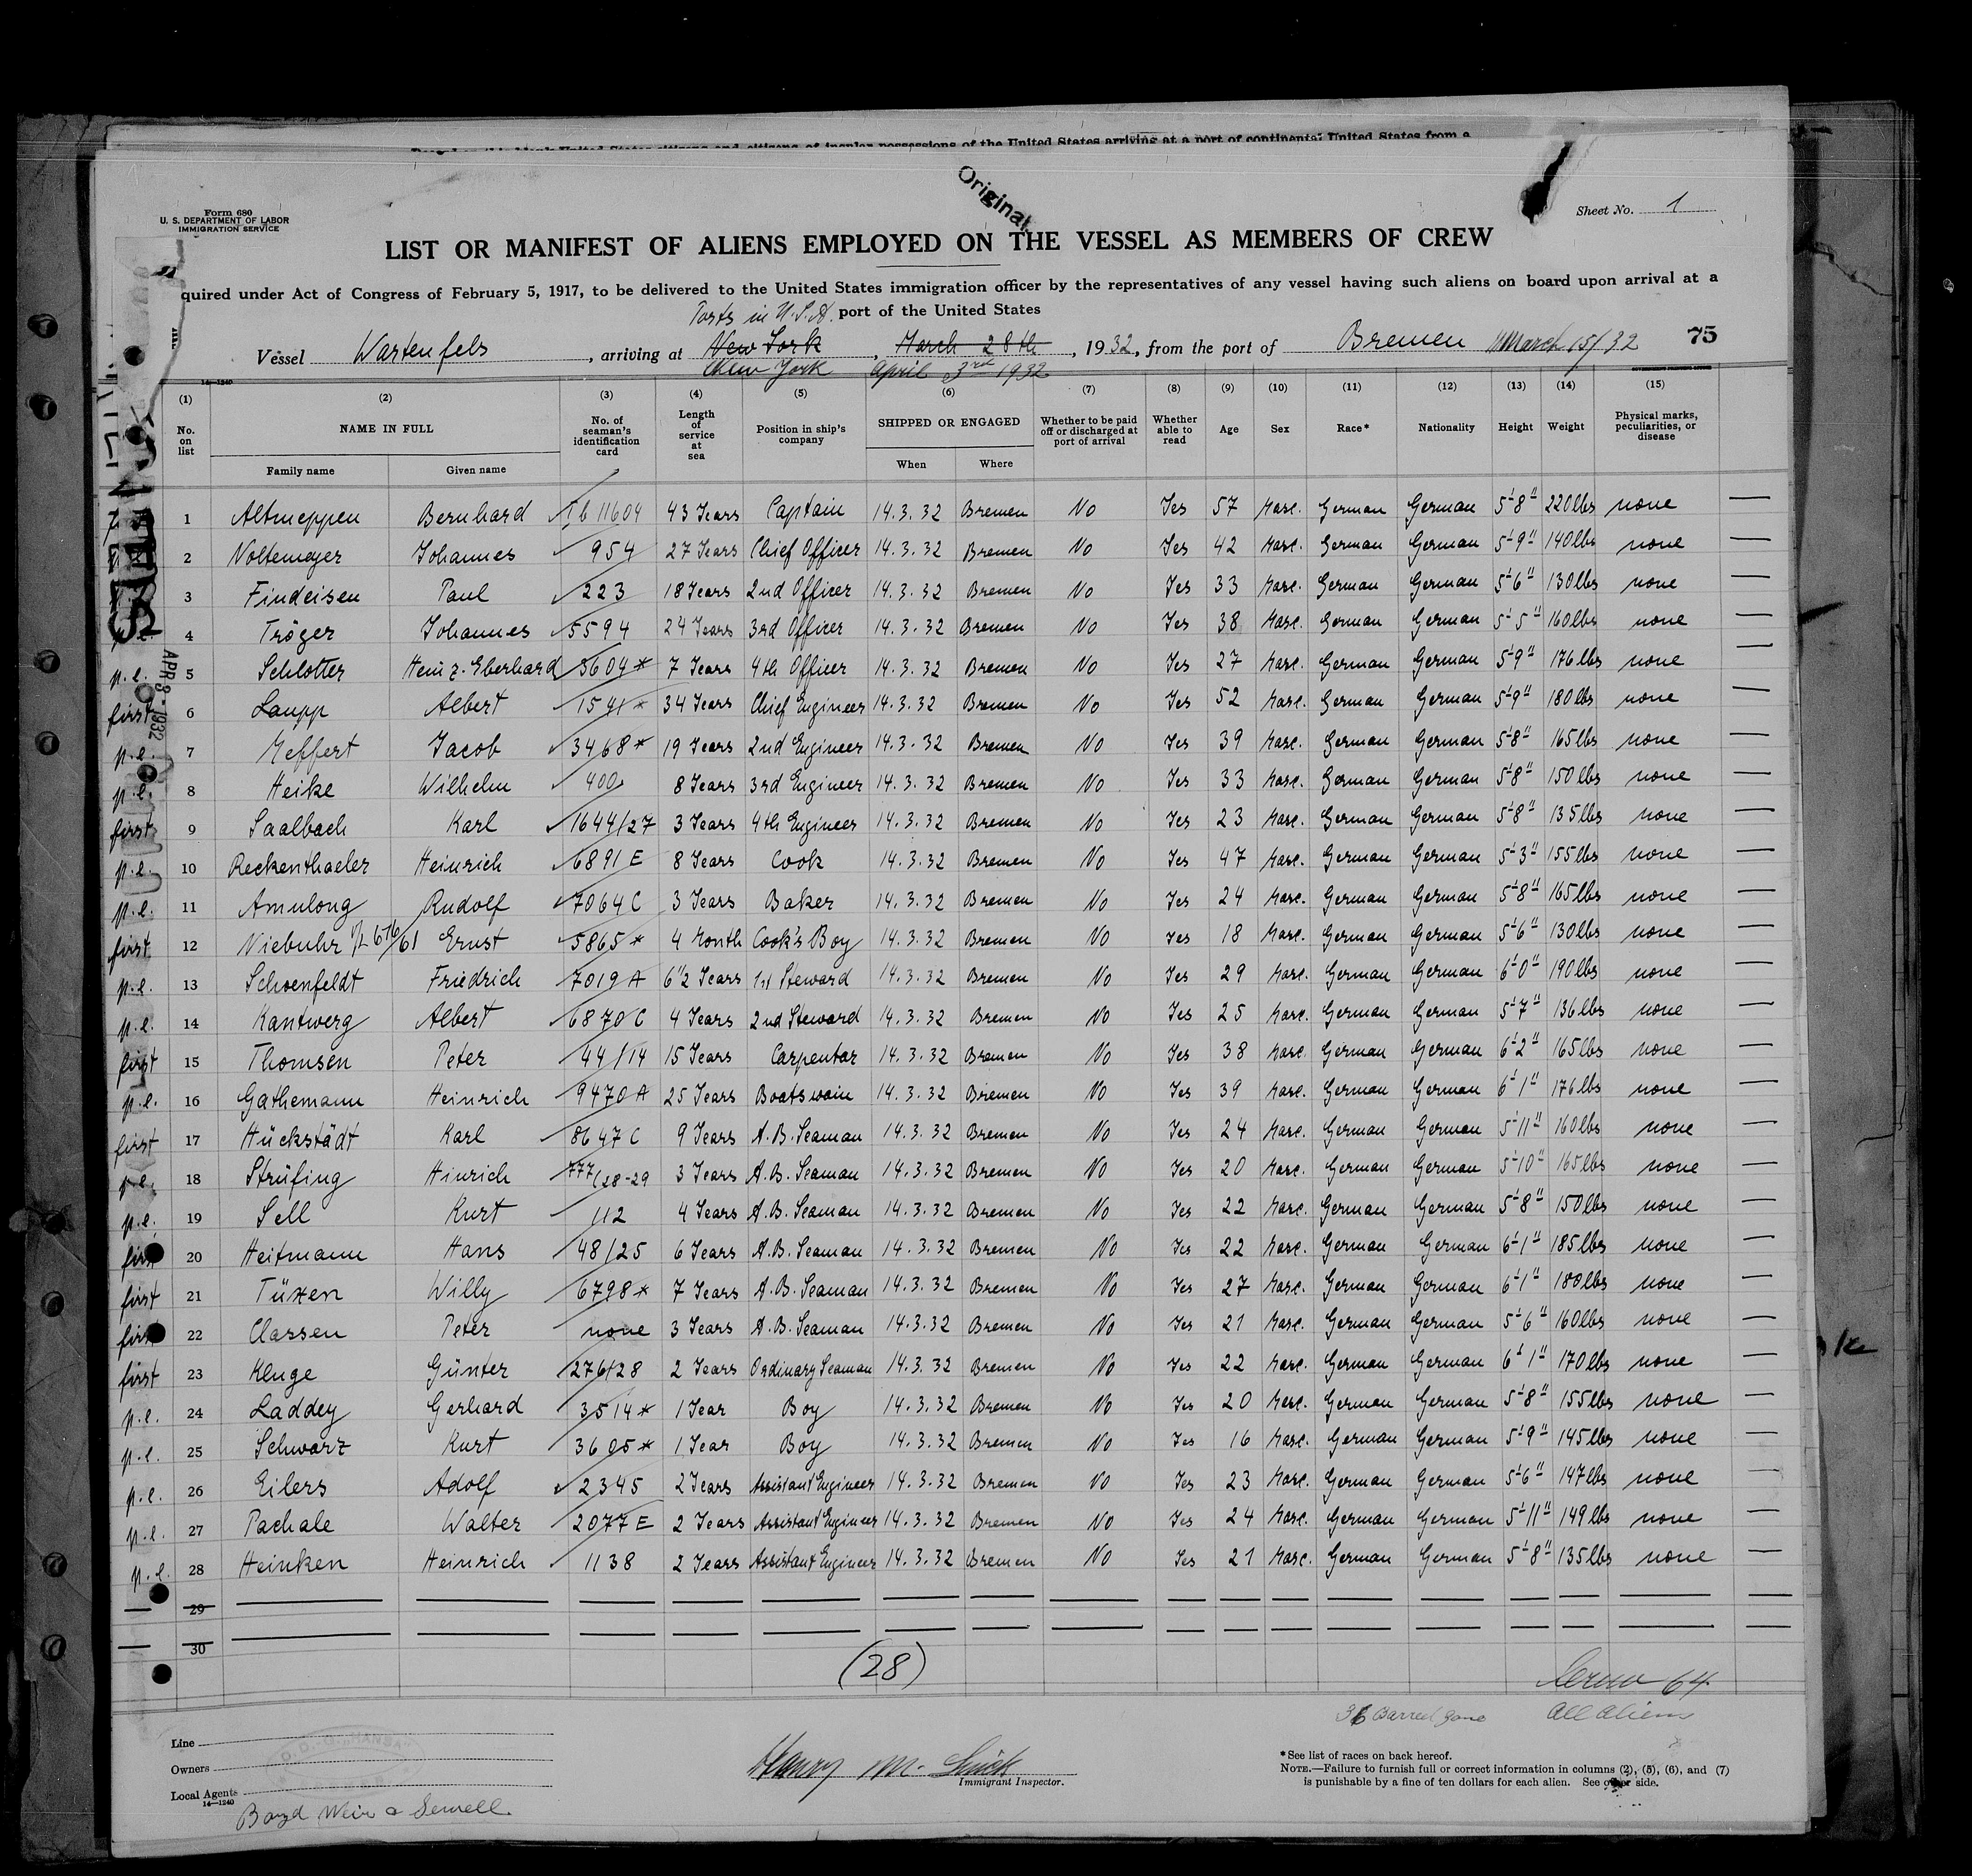 Original
Form 680
U. S. DEPARTMENT OF LABOR
IMMIGRATION SERVICE
Sheet No. 1
LIST OR MANIFEST OF ALIENS EMPLOYED ON THE VESSEL AS MEMBERS OF CREW
quired under Act of Congress of February 5, 1917, to be delivered to the United States immigration officer by the representatives of any vessel having such aliens on board upon arrival at a
Ports in U.S.A. port of the United States
Vessel Wartenfels, arriving at New York, March 28th, 1932, from the port of Bremen March 15/32 75
New York April 3rd 1932
14—1240
(1) (2) (3) (4) (5) (6) (7) (8) (9) (10) (11) (12) (13) (14) (15)
No. on list NAME IN FULL No. of seaman's identification card Length of service at sea Position in ship's company SHIPPED OR ENGAGED Whether to be paid off or discharged at port of arrival Whether able to read Age Sex Race* Nationality Height Weight Physical marks, peculiarities, or disease
Family name Given name When Where
1 Altmeppen Bernhard Tb 11604 43 Years Captain 14.3.32 Bremen No Yes 57 Masc. German German 5'8" 220lbs none —
2 Noltemeyer Johannes 954 27 Years Chief Officer 14.3.32 Bremen No Yes 42 Masc. German German 5'9" 140lbs none —
3 Findeisen Paul 223 18 Years 2nd Officer 14.3.32 Bremen No Yes 33 Masc. German German 5'6" 130lbs none —
4 Tröger Johannes 5594 24 Years 3rd Officer 14.3.32 Bremen No Yes 38 Masc. German German 5'5" 160lbs none —
p.l. 5 Schlotter Heinz-Eberhard 5604* 7 Years 4th Officer 14.3.32 Bremen No Yes 27 Masc. German German 5'9" 176lbs none —
first 6 Laupp Albert 1541* 34 Years Chief Engineer 14.3.32 Bremen No Yes 52 Masc. German German 5'9" 180lbs none —
p.l. 7 Meffert Jacob 3468* 19 Years 2nd Engineer 14.3.32 Bremen No Yes 39 Masc. German German 5'8" 165lbs none —
p.l. 8 Heike Wilhelm 400 8 Years 3rd Engineer 14.3.32 Bremen No Yes 33 Masc. German German 5'8" 150lbs none —
first 9 Saalbach Karl 1644/27 3 Years 4th Engineer 14.3.32 Bremen No Yes 23 Masc. German German 5'8" 135lbs none —
p.l. 10 Reckenthaeler Heinrich 6891 E 8 Years Cook 14.3.32 Bremen No Yes 47 Masc. German German 5'3" 155lbs none —
p.l. 11 Amulong Rudolf 7064 C 3 Years Baker 14.3.32 Bremen No Yes 24 Masc. German German 5'8" 165lbs none —
first 12 Niebuhr Ernst 5865* 4 Month Cook's Boy 14.3.32 Bremen No Yes 18 Masc. German German 5'6" 130lbs none —
p.l. 13 Schoenfeldt Friedrich 7019 A 6½ Years 1st Steward 14.3.32 Bremen No Yes 29 Masc. German German 6'0" 190lbs none —
p.l. 14 Kantwerg Albert 6870 C 4 Years 2nd Steward 14.3.32 Bremen No Yes 25 Masc. German German 5'7" 136lbs none —
first 15 Thomsen Peter 44/14 15 Years Carpenter 14.3.32 Bremen No Yes 38 Masc. German German 6'2" 165lbs none —
p.l. 16 Gathemann Heinrich 9470 A 25 Years Boatswain 14.3.32 Bremen No Yes 39 Masc. German German 6'1" 176lbs none —
first 17 Hückstädt Karl 8647 C 9 Years A.B. Seaman 14.3.32 Bremen No Yes 24 Masc. German German 5'11" 160lbs none —
p.l. 18 Strüfing Hinrich 777/28-29 3 Years A.B. Seaman 14.3.32 Bremen No Yes 20 Masc. German German 5'10" 165lbs none —
p.l. 19 Sell Kurt 112 4 Years A.B. Seaman 14.3.32 Bremen No Yes 22 Masc. German German 5'8" 150lbs none —
first 20 Heitmann Hans 48/25 6 Years A.B. Seaman 14.3.32 Bremen No Yes 22 Masc. German German 6'1" 185lbs none —
first 21 Tüxen Willy 6798* 7 Years A.B. Seaman 14.3.32 Bremen No Yes 27 Masc. German German 6'1" 180lbs none —
first 22 Classen Peter none 3 Years A.B. Seaman 14.3.32 Bremen No Yes 21 Masc. German German 5'6" 160lbs none —
first 23 Kluge Günter 276/28 2 Years Ordinary Seaman 14.3.32 Bremen No Yes 22 Masc. German German 6'1" 170lbs none —
p.l. 24 Laddey Gerhard 3514* 1 Year Boy 14.3.32 Bremen No Yes 20 Masc. German German 5'8" 155lbs none —
p.l. 25 Schwarz Kurt 3605* 1 Year Boy 14.3.32 Bremen No Yes 16 Masc. German German 5'9" 145lbs none —
p.l. 26 Eilers Adolf 2345 2 Years Assistant Engineer 14.3.32 Bremen No Yes 23 Masc. German German 5'6" 147lbs none —
p.l. 27 Pachale Walter 2077 E 2 Years Assistant Engineer 14.3.32 Bremen No Yes 24 Masc. German German 5'11" 149lbs none —
p.l. 28 Heinken Heinrich 1138 2 Years Assistant Engineer 14.3.32 Bremen No Yes 21 Masc. German German 5'8" 135lbs none —
29
30
(28)
Crew 64
36 Barred Zone All Aliens
Line
Owners
Local Agents
14—1240
Boyd Weir & Sewell.
Henry M.
Immigrant Inspector.
*See list of races on back hereof.
NOTE.—Failure to furnish full or correct information in columns (2), (5), (6), and (7)
is punishable by a fine of ten dollars for each alien. See other side.
APR 3 - 1932